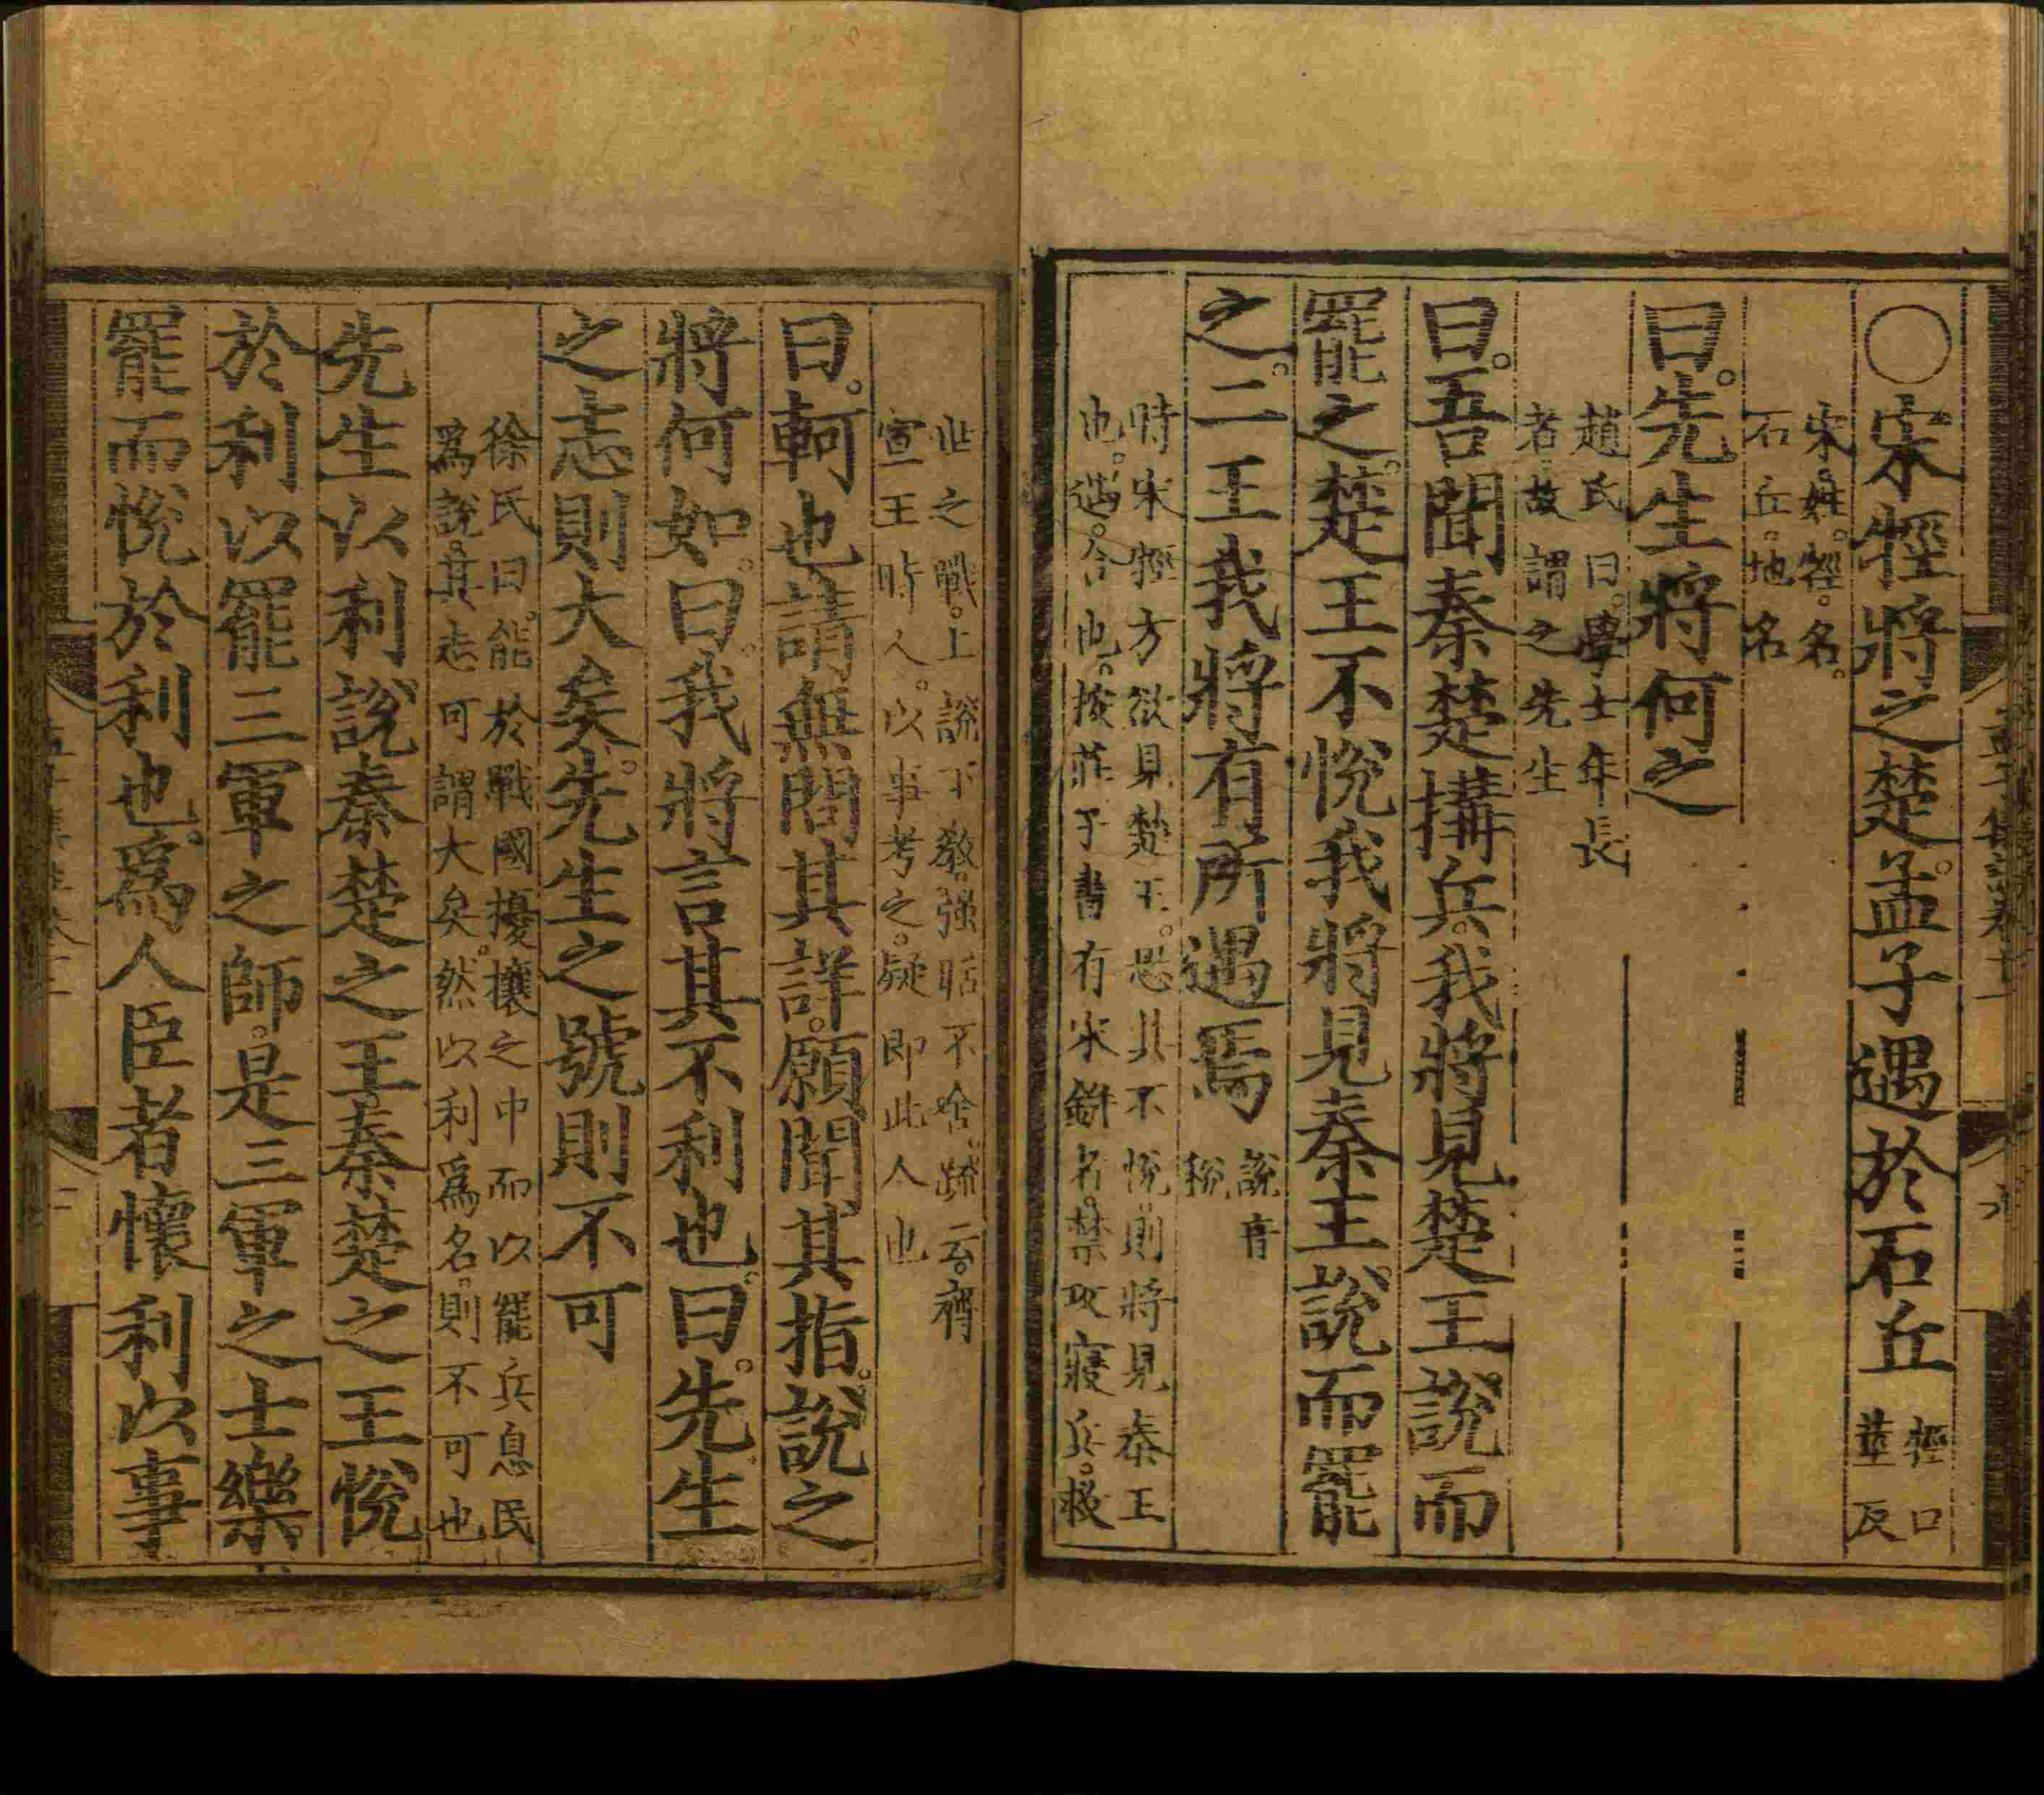 ○宋牼將之楚。孟子遇於石丘牼口莖反
宋。姓。牼。名。
石丘。地名
曰。先生將何之
趙氏曰。學士年長
者。故謂之先生
曰。吾聞秦楚搆兵。我將見楚王說而
罷之。楚王不悅我將見秦王說而罷
之。二王我將有所遇焉說音稅
時宋牼方欲見楚王。恐其不悅。則將見秦王
也。遇。合也。按莊子書有宋鈃名。禁攻寢兵。救
世之戰。上說下教。强聒不舍。疏云。齊
宣王時人。以事考之。疑即此人也
曰。軻也請無問其詳。願聞其指。說之
將何如。曰。我將言其不利也。曰。先生
之志則大矣。先生之號則不可
徐氏曰。能於戰國擾攘之中而以罷兵息民
爲說。其志可謂大矣。然以利爲名。則不可也
先生以利說秦楚之王秦楚之王悅
於利以罷三軍之師。是三軍之士樂
罷而悅於利也。爲人臣者懷利以事